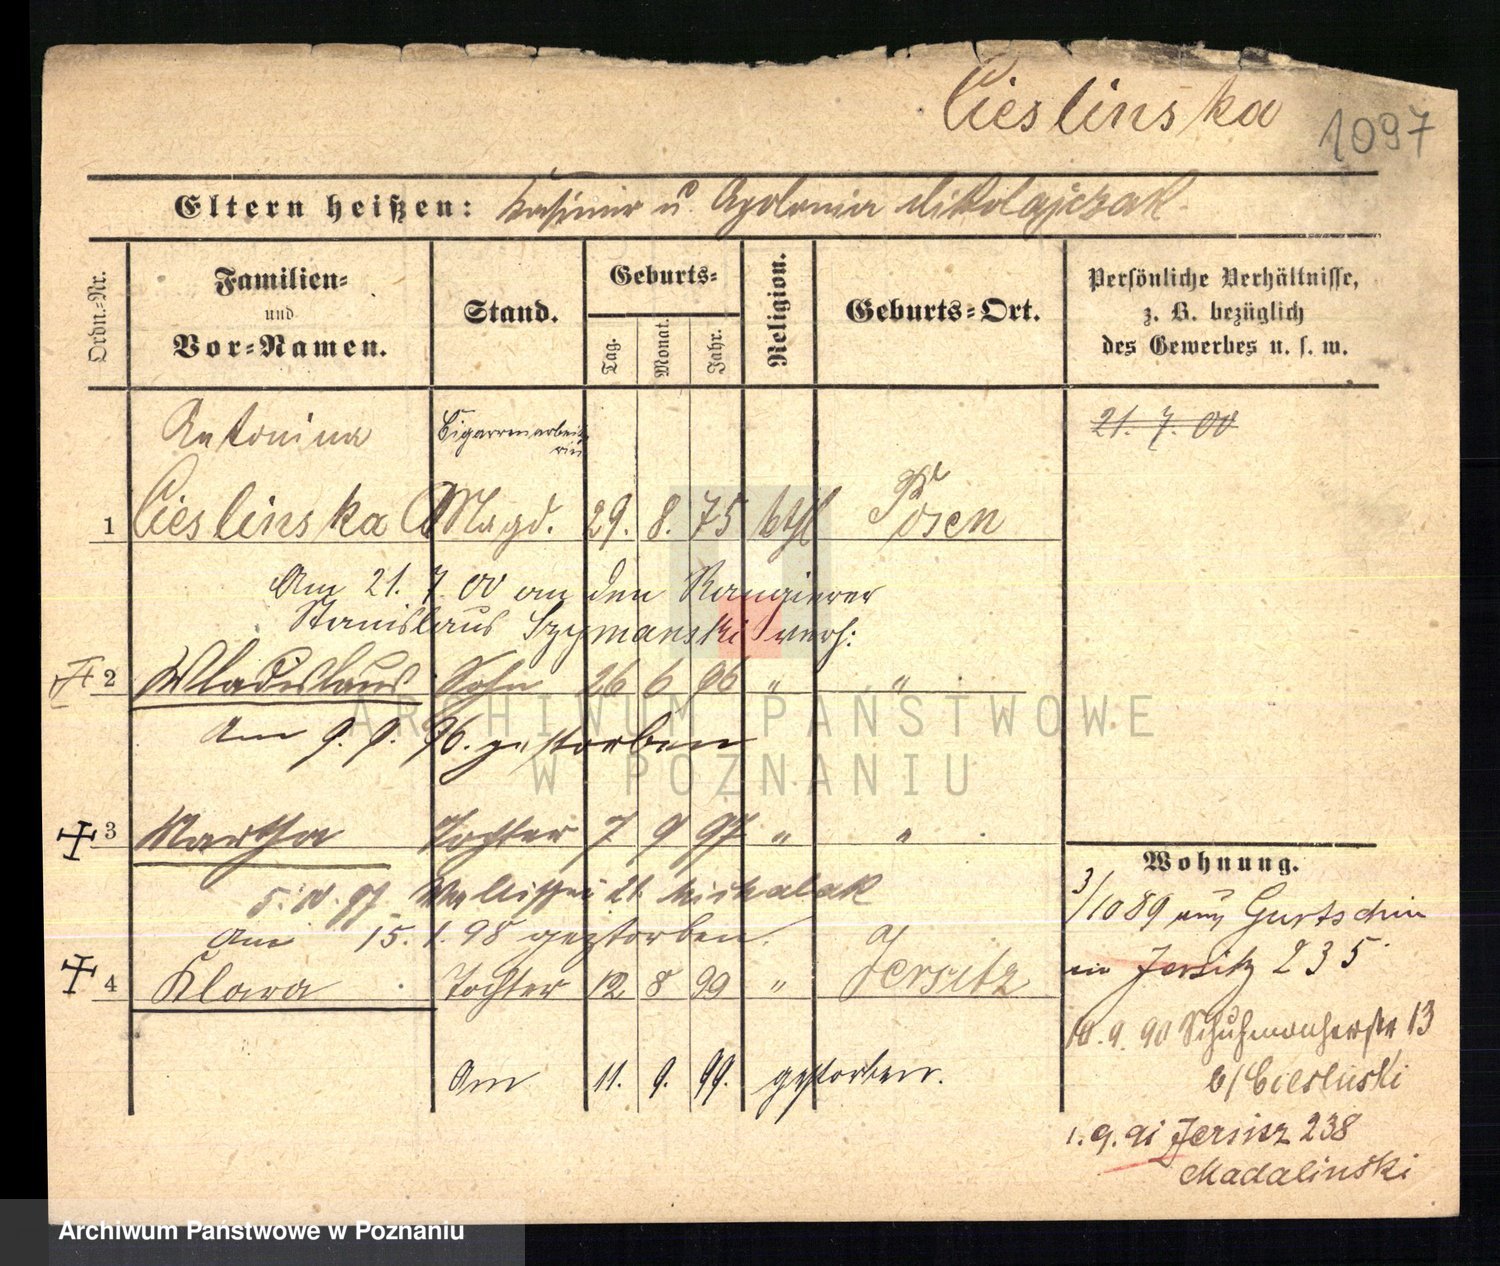 Cieslinska 1097
Eltern heißen: Kasimir u. Apolonia Mikolajczak
Ordn.-Nr.
Familien-
und
Vor-Namen.
Stand.
Geburts-
Tag.
Monat.
Jahr.
Religion.
Geburts-Ort.
Persönliche Verhältnisse,
z. B. bezüglich
des Gewerbes u. s. w.
Antonina Cigarrenarbeite-
rin
21. 7. 00
1 Cieslinska Magd. 29. 8. 75 kthl Posen
Am 21. 7. 00 an den Rangierer
Stanislaus Szymanski verh:
2 Wladislaus Sohn 26 6 96 " "
Am 9. 9. 96. gestorben
ARCHIWUM PAŃSTWOWE
W POZNANIU
3 Martha Tochter 7 9 97 " "
Wohnung.
3/10 89 aus Gurtschin
in Jersitz 235
21.
Am 15. 1. 98 gestorben.
4 Klara Tochter 12. 8 99 " Jersitz
90 13
b/ Cieslinski
Am 11. 9. 99. gestorben.
1. 9. 91 Jersitz 238
Madalinski
Archiwum Państwowe w Poznaniu